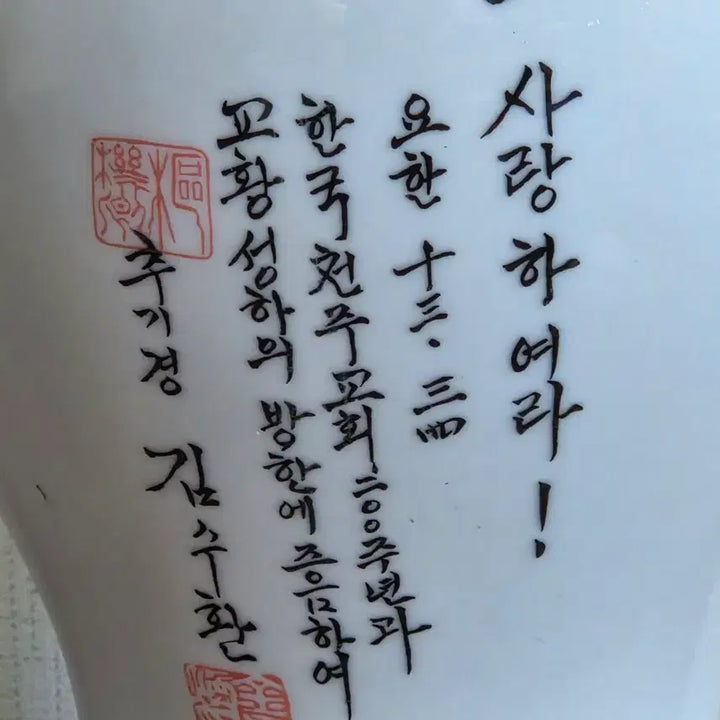 사랑하여라!
요한 十三·三四
한국천주교회 二〇〇주년과
교황성하의 방한에 즈음하여
樞機卿
추기경 김수환